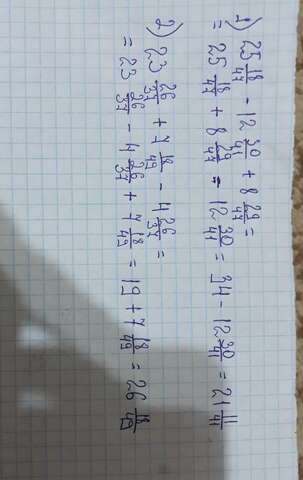 1) 25 18/47 - 12 30/41 + 8 29/47 =
= 25 18/47 + 8 29/47 - 12 30/41 = 34 - 12 30/41 = 21 11/41
2) 23 26/37 + 7 18/49 - 4 26/37 =
= 23 26/37 - 4 26/37 + 7 18/49 = 19 + 7 18/49 = 26 18/49